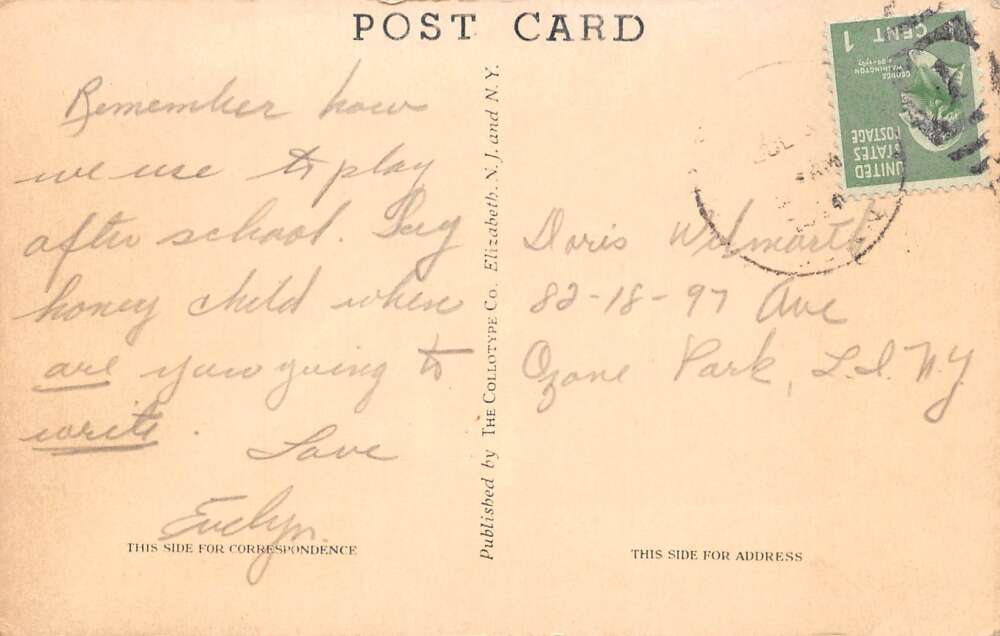 POST CARD
Remember how
we use to play
after school. Say
honey child when
are you going to
write.
Love
Evelyn.
THIS SIDE FOR CORRESPONDENCE
Published by THE COLLOTYPE CO. Elizabeth, N. J. and N. Y.
1 CENT
GEORGE
WASHINGTON
UNITED
STATES
POSTAGE
Doris Wilmarth
82-18-97 Ave
Ozone Park, L.I. N.Y.
THIS SIDE FOR ADDRESS